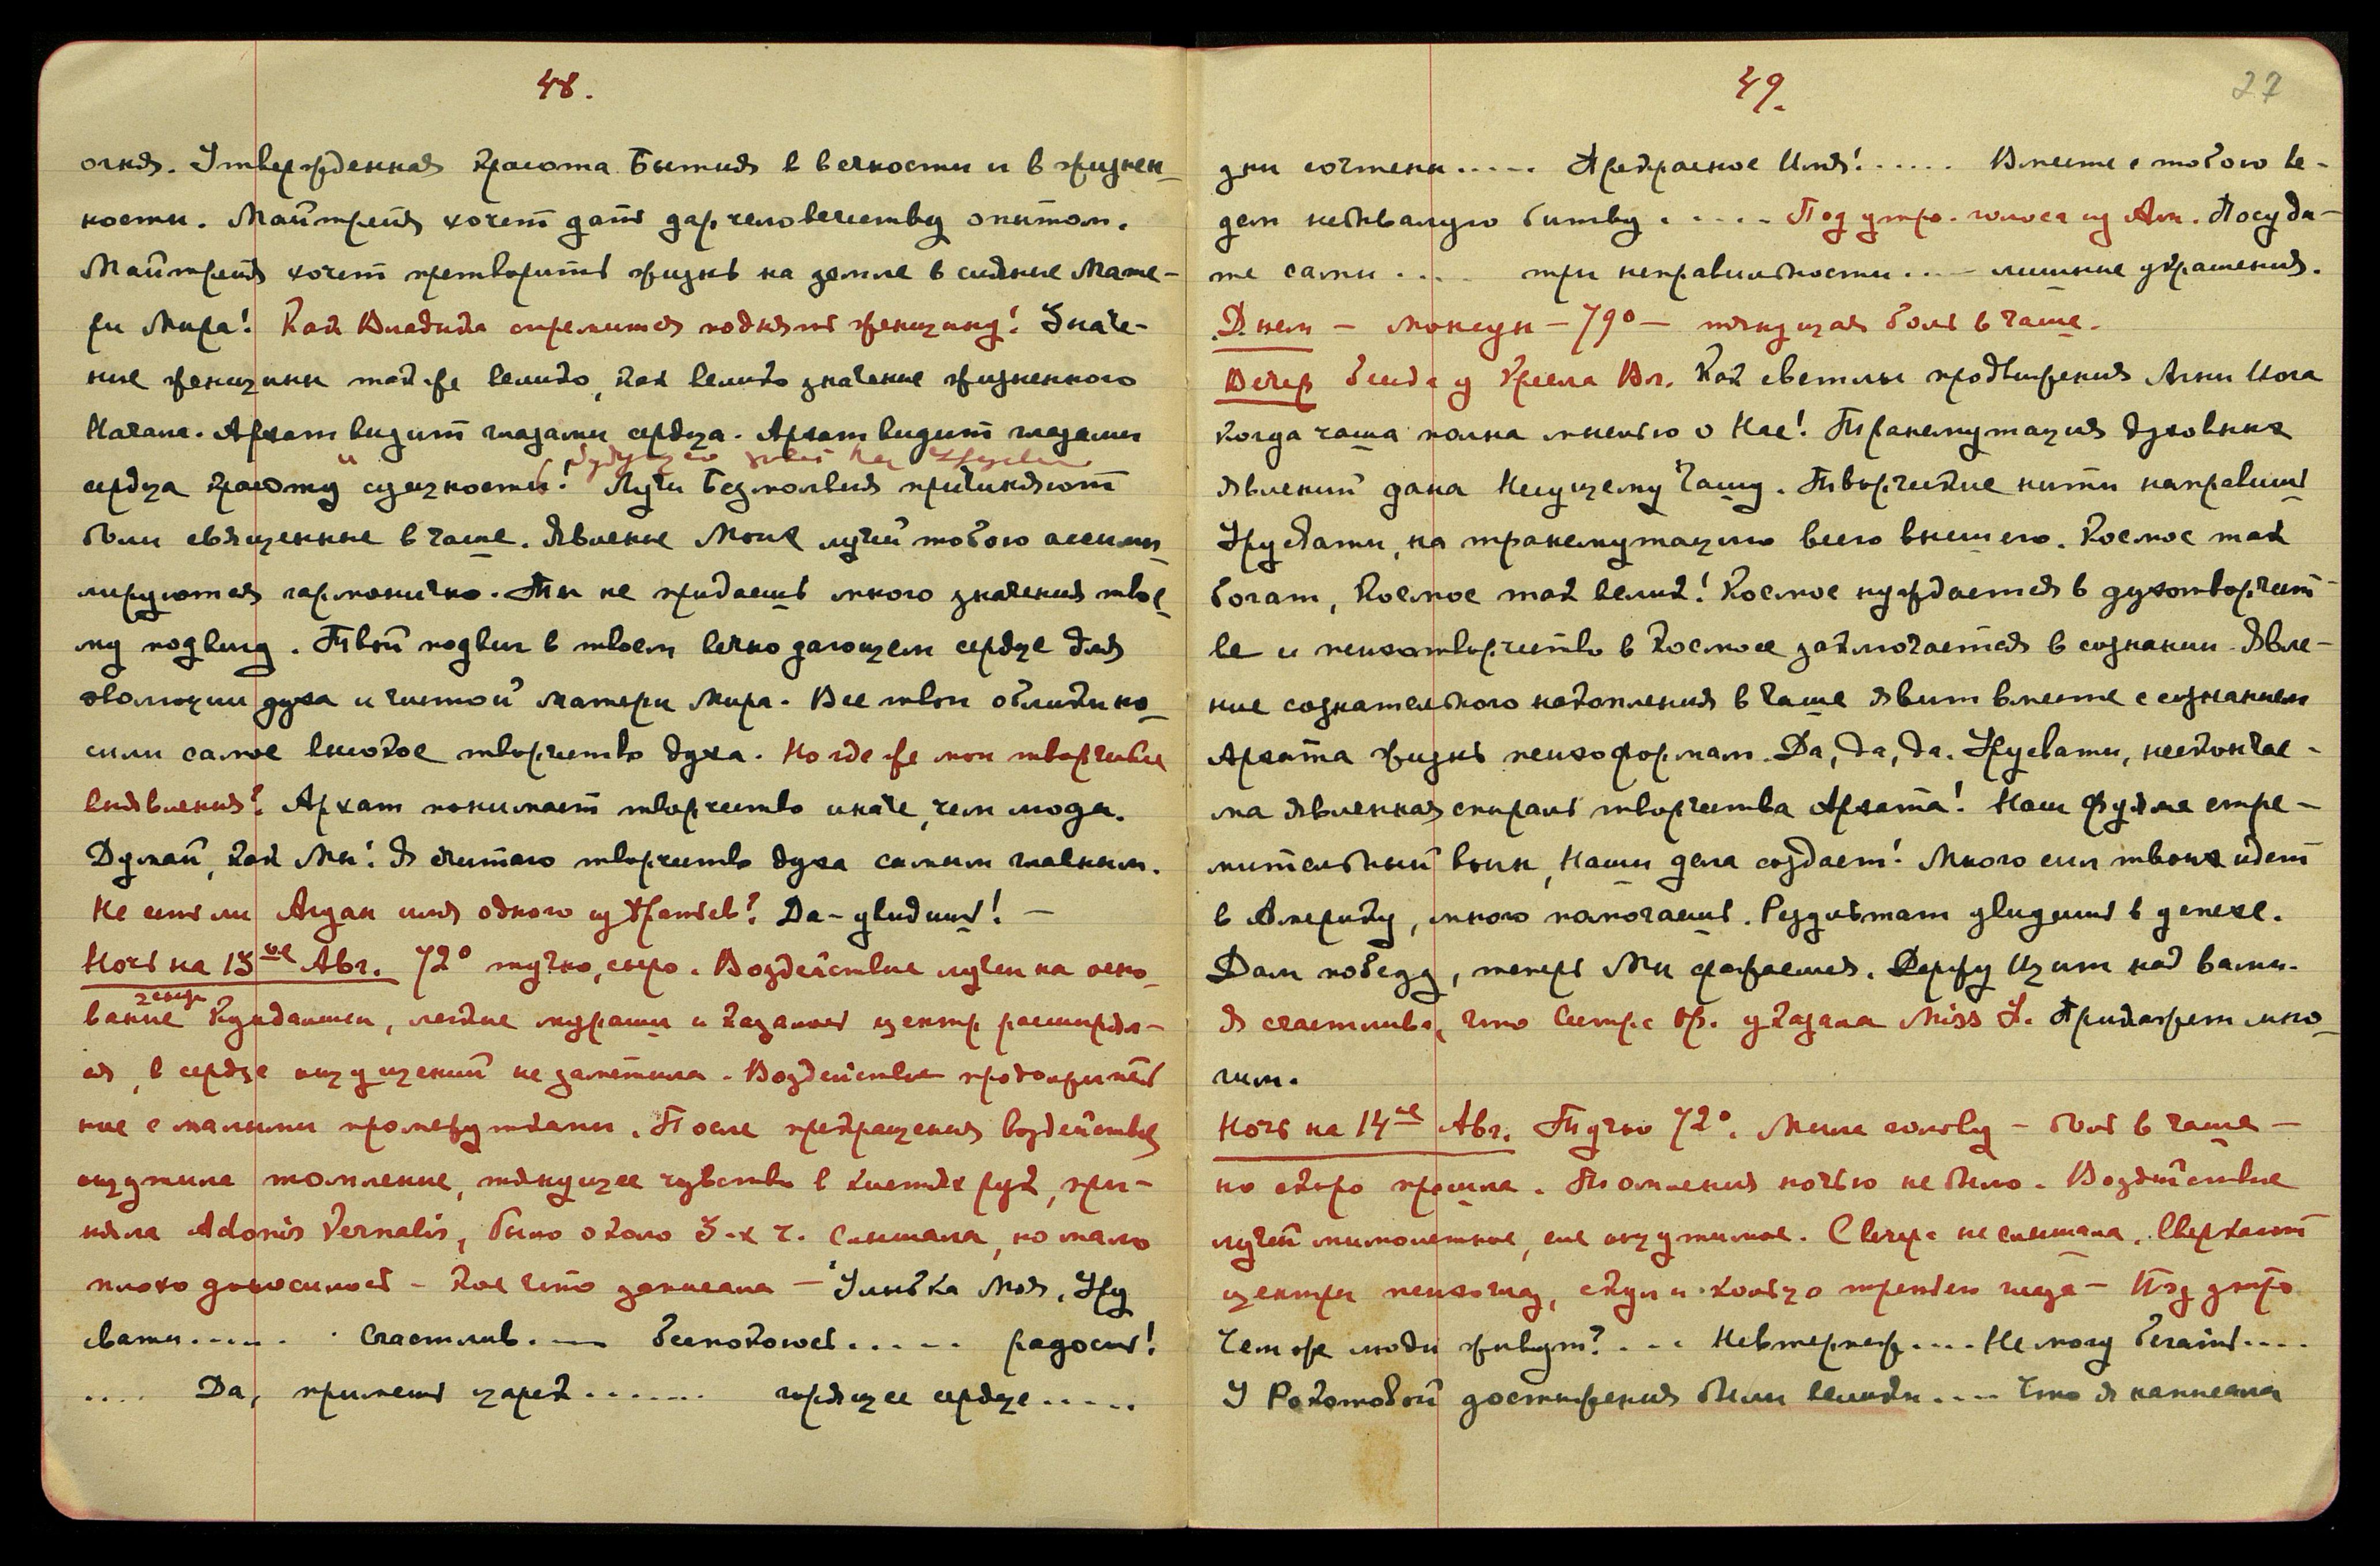 48.
огня. Утвержденная красота Бытия в вечности и в жизнен-
ности. Майтрейя хочет дать дар человечеству опытом.
Майтрейя хочет претворить жизнь на земле в сияние Мате-
ри Мира! Как Владыка стремится поднять женщину! Значе-
ние женщины так же велико, как велико значение жизненного
Начала. Архат видит глазами сердца. Архат видит глазами
и будущее
сердца красоту сущности! Лучи Безмолвия причиняют
боли священные в чаше. Явление Моих лучей тобою ассими-
лируются гармонично. Ты не придаешь много значения твое-
му подвигу. Твой подвиг в твоем вечно дающем сердце для
эволюции духа и чистой Матери Мира. Все твои облики но-
сили самое высокое творчество духа. Но где же мои творческие
выявления? Архат понимает творчество иначе, чем люди.
Думай, как Мы! Я считаю творчество духа самым главным.
Не есть ли имя одного из Братьев? Да – увидишь! –
Ночь на 13ое Авг. 72° тучно, сыро. Воздействие лучей на осно-
вание Кундалини, легкие мураши и казалось центр расширял-
ся, в сердце ощущений не заметила. Воздействие продолжитель-
ное с малыми промежутками. После прекращения воздействия
ощутила томление, тянущее чувство в кистях рук, при-
няла Adonis Vernalis, было около 3-х ч. Слышала, но мало
плохо доносилось – кое что записала – Улыбка Моя, Уру
свати..... Счастлив.... беспокоюсь..... радость!
.... Да, примешь царей....... горящее сердце.....
49.
27
дни сочтены..... Прекрасное Имя!..... Вместе с тобою ве-
дем небывалую битву..... Под утро голоса из Ам. Посуди-
те сами.... три неправильности.... лишние украшения.
Днем – монсун – 79° – тянущая боль в чаше.
Вечер беседа у Кресла Вл. Как светлы продвижения Агни Йога
когда чаша полна мыслью о Нас! Трансмутация духовных
явлений дана Несущему Чашу. Творческие нити направишь
Урусвати, на трансмутацию всего высшего. Космос так
богат, Космос так велик! Космос нуждается в духотворчест-
ве и психотворчество в Космосе заключается в сознании. Явле-
ние сознательного накопления в Чаше явит вместе с сознанием
Архата жизнь психоформам. Да, да, да. Урусвати, нескончае-
ма явленная спираль творчества Архата! Наш Фуяма стре-
мительный воин, Наши дела создает! Много сил твоих идет
в Америку, много помогаешь. Результат увидишь в успехе.
Дам победу, теперь Мы сражаемся. Держу Щит над вами.
Я счастлива, что Сестра Ор. указала Miss L. Прикажет мно-
гим.
Ночь на 14ое Авг. Тучно 72°. Мыла голову – боль в чаше –
но скоро прошла. Томления ночью не было. Воздействие
лучей мимолетное, еле ощутимое. С вечера не слышала. Сверкают
центры психоглаз, скулы и кольцо третьего глаза – Под утро
Чем же люди живут?.... Невтерпеж.... Не могу бегать....
У Рокотовой достижения были велики.... Что я написала